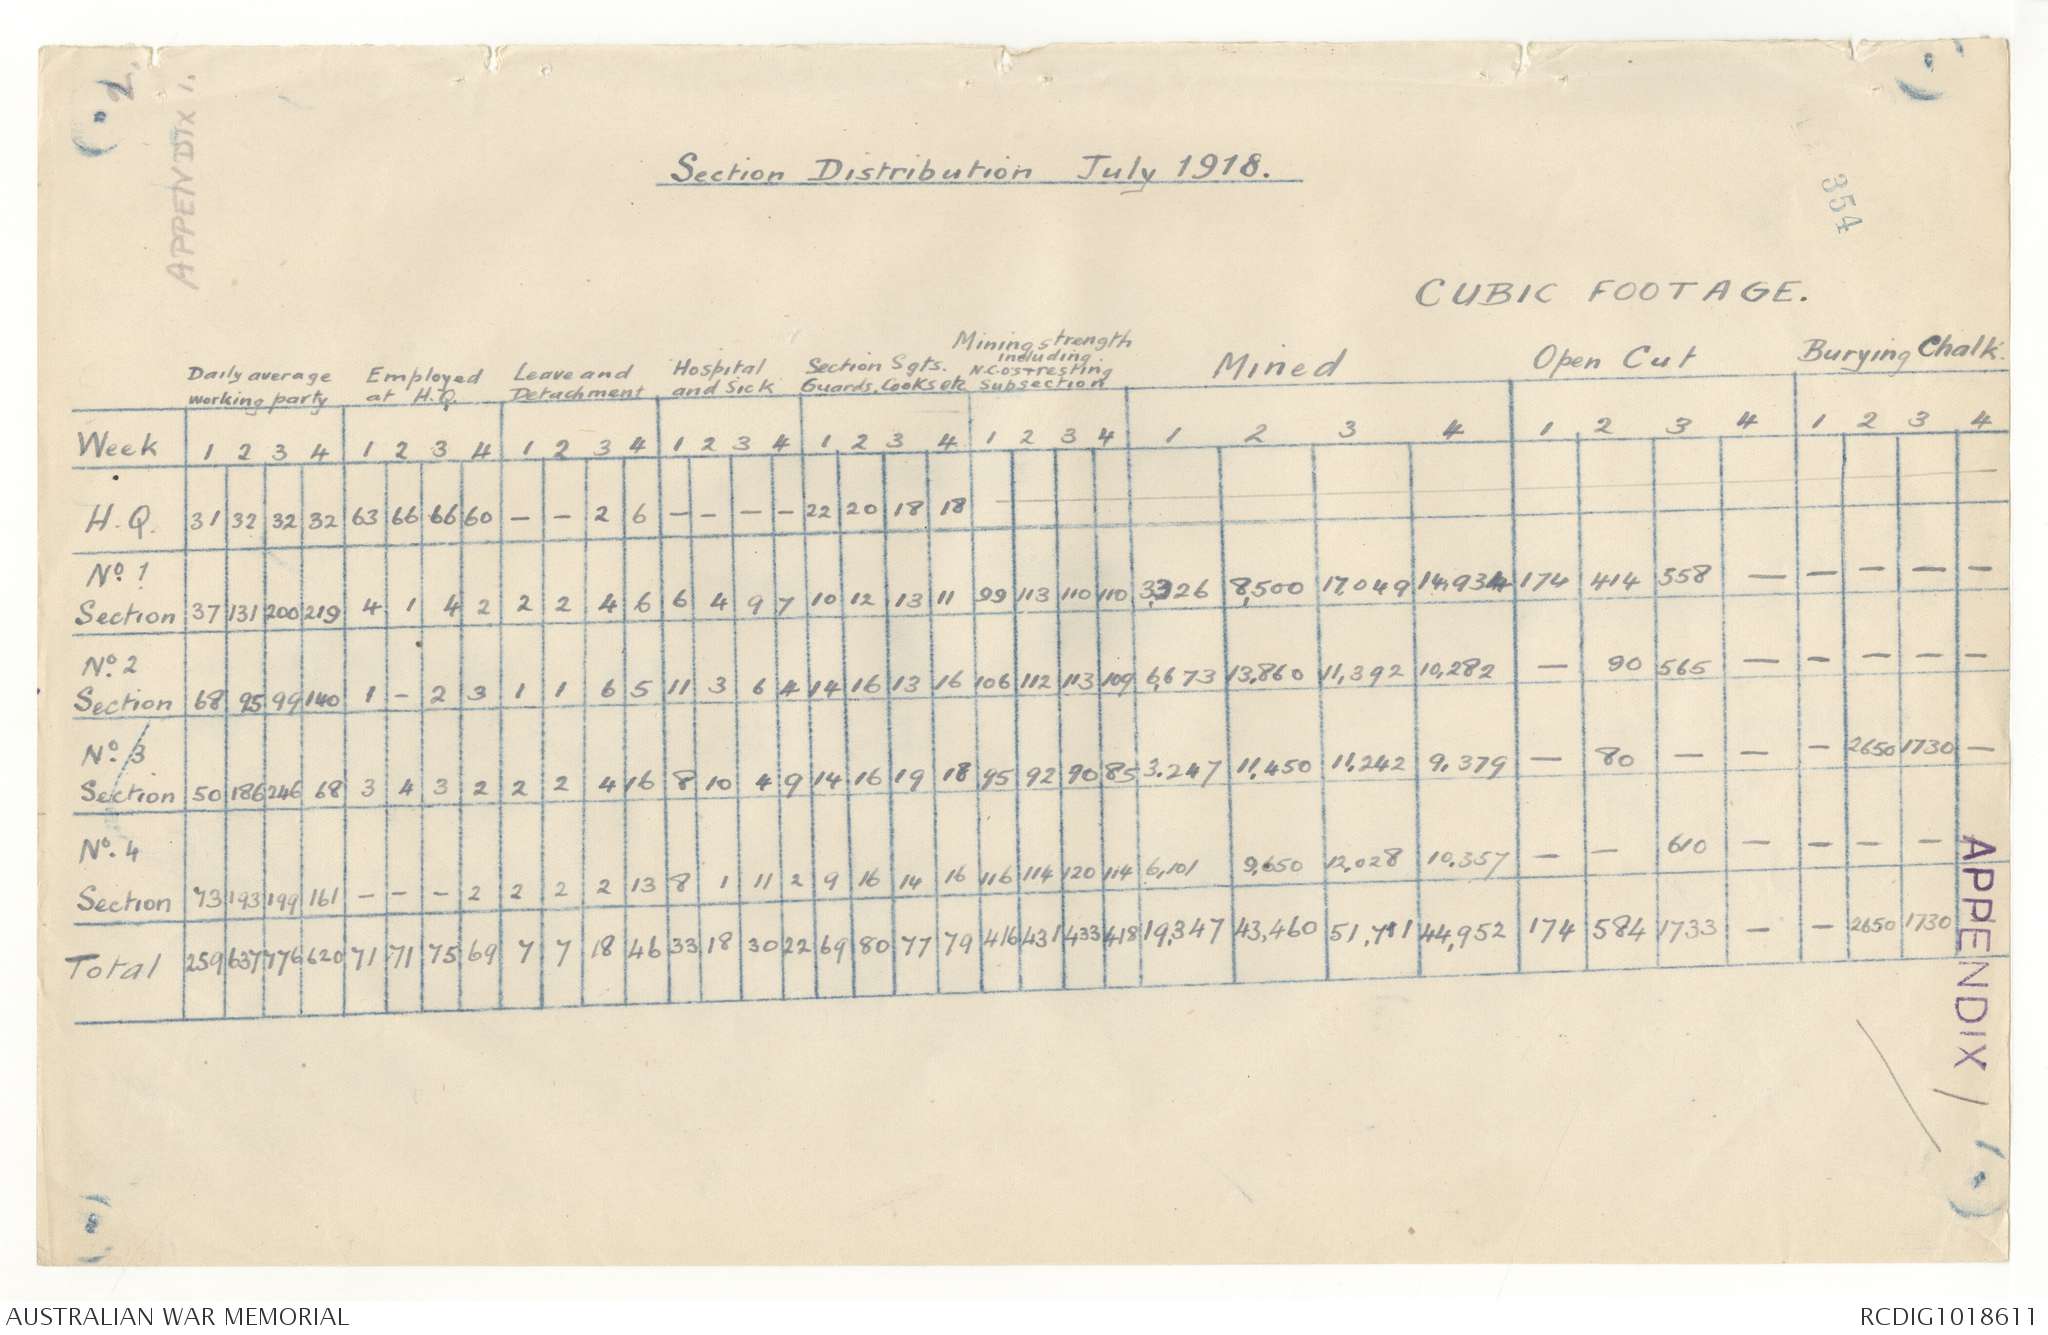 2.
APPENDIX 1.
Section Distribution July 1918.
354
CUBIC FOOTAGE.
Daily average working party | Employed at H.Q. | Leave and Detachment | Hospital and Sick | Section Sgts. Guards, Cooks etc | Mining strength including N.C.Os + resting Subsection | Mined | Open Cut | Burying Chalk.
Week 1 2 3 4 1 2 3 4 1 2 3 4 1 2 3 4 1 2 3 4 1 2 3 4 1 2 3 4 1 2 3 4 1 2 3 4
H.Q. 31 32 32 32 63 66 66 60 — — 2 6 — — — — 22 20 18 18 —
No. 1 Section 37 131 200 219 4 1 4 2 2 2 4 6 6 4 9 7 10 12 13 11 99 113 110 110 3,326 8,500 17,049 14,934 174 414 558 — — — — —
No. 2 Section 68 95 99 140 1 — 2 3 1 1 6 5 11 3 6 4 14 16 13 16 106 112 113 109 6,673 13,860 11,392 10,282 — 90 565 — — — — —
No. 3 Section 50 186 246 68 3 4 3 2 2 2 4 16 8 10 4 9 14 16 19 18 95 92 90 85 3.247 11,450 11,242 9,379 — 80 — — — 2650 1730 —
No. 4 Section 73 193 199 161 — — — 2 2 2 2 13 8 1 11 2 9 16 14 16 116 114 120 114 6,101 9,650 12,028 10,357 — — 610 — — — —
Total 259 637 776 620 71 71 75 69 7 7 18 46 33 18 30 22 69 80 77 79 416 431 433 418 19,347 43,460 51,711 44,952 174 584 1733 — — 2650 1730
APPENDIX 1
AUSTRALIAN WAR MEMORIAL
RCDIG1018611